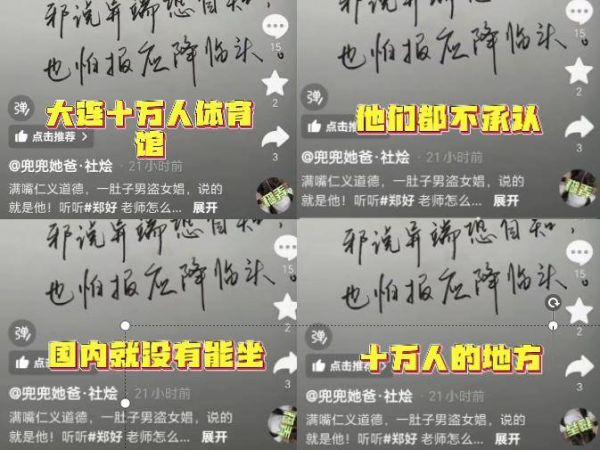 邪说异端恐自知,
也怕报应降临头。
15
2
弹
大连十万人体育
馆
点击推荐 >
3
@兜兜她爸·社烩 · 21小时前
满嘴仁义道德,一肚子男盗女娼,说的
就是他!听听#郑好 老师怎么... 展开
邪说异端恐自知,
也怕报应降临头。
15
2
弹
他们都不承认
点击推荐
3
@兜兜她爸·社烩 · 21小时前
满嘴仁义道德,一肚子男盗女娼,说的
就是他!听听#郑好 老师怎么... 展开
邪说异端恐自知,
也怕报应降临头。
15
2
弹
国内就没有能坐
3
@兜兜她爸·社烩 · 21小时前
满嘴仁义道德,一肚子男盗女娼,说的
就是他!听听#郑好 老师怎么... 展开
邪说异端恐自知,
也怕报应降临头。
15
2
弹
十万人的地方
点击推荐
3
@兜兜她爸·社烩 · 21小时前
满嘴仁义道德,一肚子男盗女娼,说的
就是他!听听#郑好 老师怎么... 展开